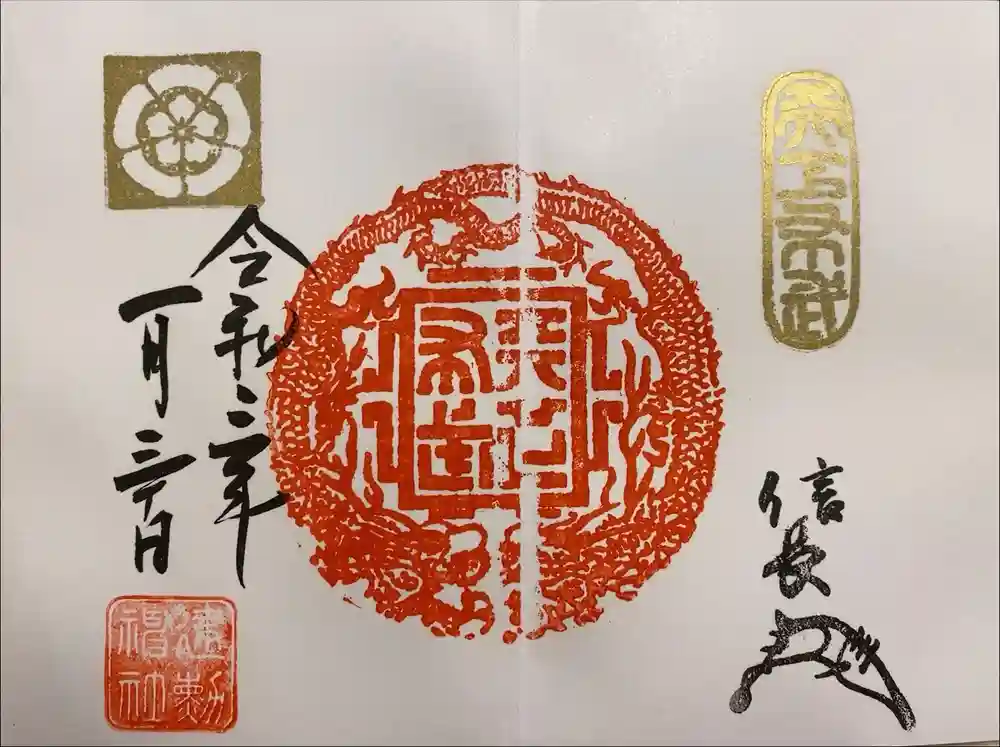 天下布武
信長
天下
布武
令和二年
一月三日
建勲
神社